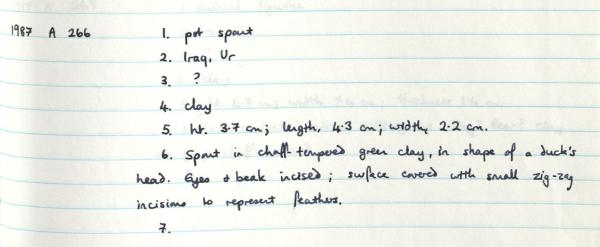 1987 A 266 1. pot spout
2. Iraq, Ur
3. ?
4. clay
5. ht. 3.7 cm; length, 4.3 cm; width, 2.2 cm.
6. Spout in chaff-tempered green clay, in shape of a duck's
head. Eyes & beak incised; surface covered with small zig-zag
incisions to represent feathers.
7.